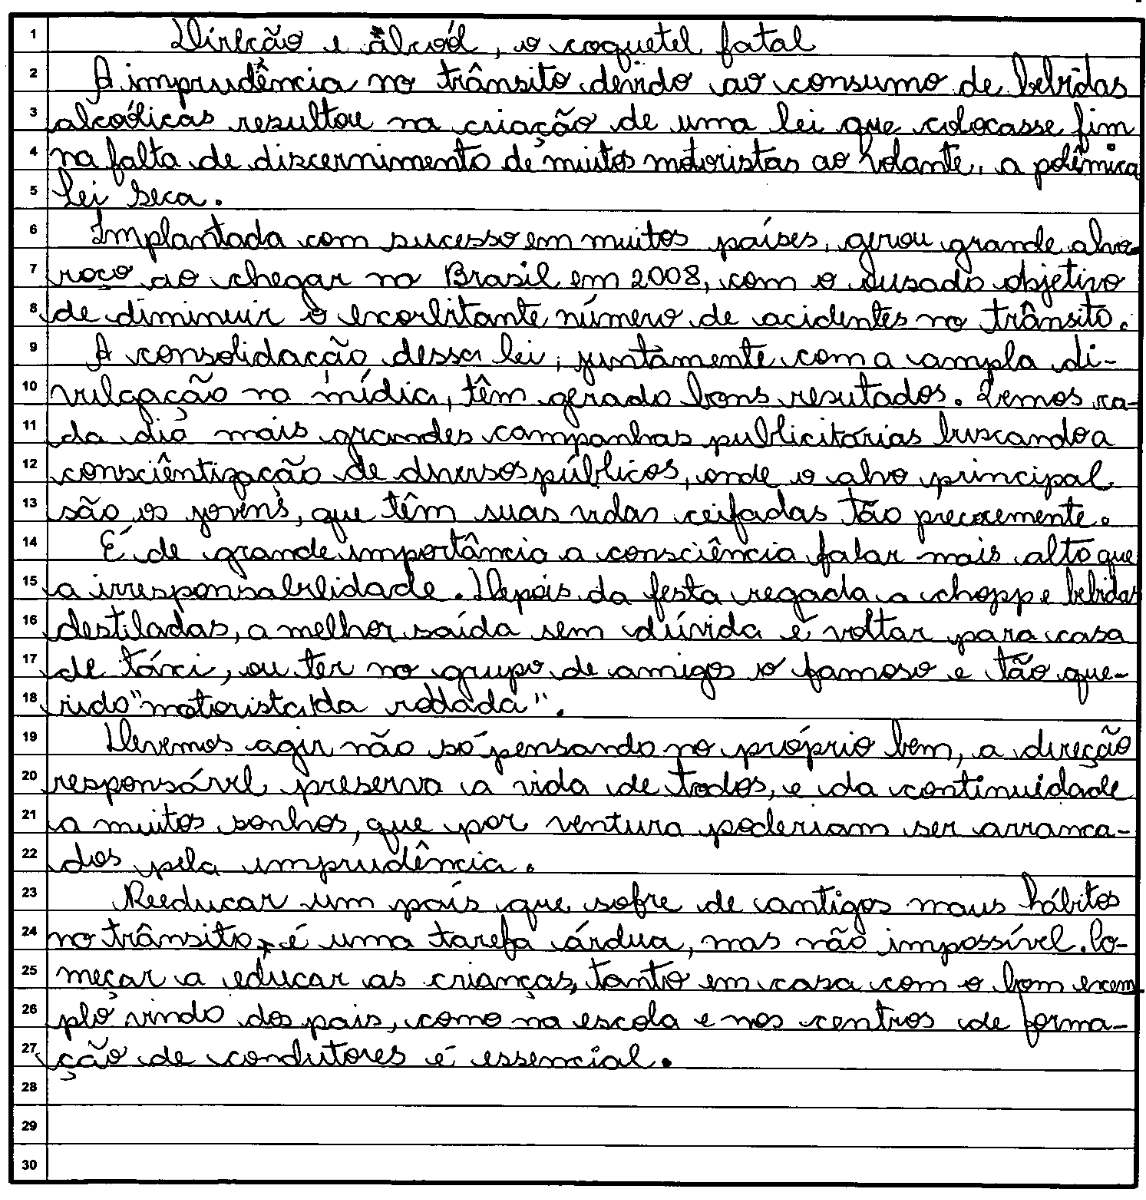 1 Direção e álcool, o coquetel fatal
2 A imprudência no trânsito devido ao consumo de bebidas
3 alcoólicas resultou na criação de uma lei que colocasse fim
4 na falta de discernimento de muitos motoristas ao volante, a polêmica
5 lei seca.
6 Implantada com sucesso em muitos países, gerou grande alvo-
7 roço ao chegar no Brasil em 2008, com o ousado objetivo
8 de diminuir o exorbitante número de acidentes no trânsito.
9 A consolidação dessa lei, juntamente com a ampla di-
10 vulgação na mídia, têm gerado bons resutados. Temos ca-
11 da dia mais grandes campanhas publicitárias buscando a
12 consciêntização de diversos públicos, onde o alvo principal
13 são os jovens, que têm suas vidas ceifadas tão precocemente.
14 É de grande importância a consciência falar mais alto que
15 a irresponsabilidade. Depois da festa regada a chopp e bebidas
16 destiladas, a melhor saída sem dúvida é voltar para casa
17 de táxi, ou ter no grupo de amigos o famoso e tão que-
18 rido "motorista da rodada".
19 Devemos agir não só pensando no próprio bem, a direção
20 responsável preserva a vida de todos, e da continuidade
21 a muitos sonhos, que por ventura poderiam ser arranca-
22 dos pela imprudência.
23 Reeducar um país que sofre de antigos maus hábitos
24 no trânsito, é uma tarefa árdua, mas não impossível. Co-
25 meçar a educar as crianças, tanto em casa com o bom exem
26 plo vindo dos pais, como na escola e nos centros de forma-
27 ção de condutores é essencial.
28
29
30